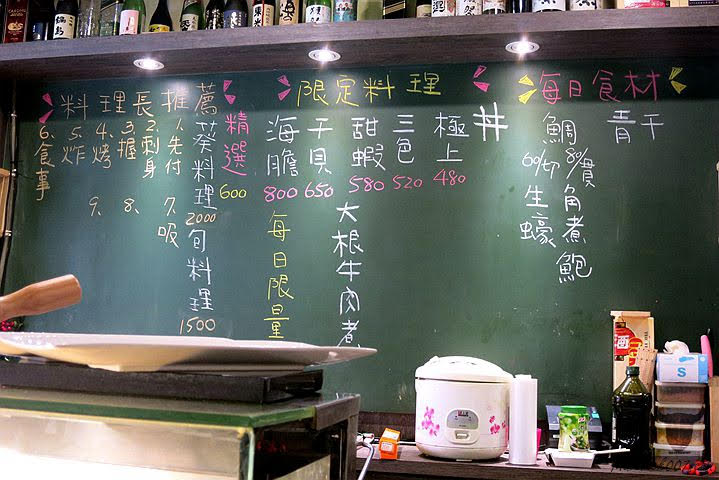 料理長推薦
葵料理
2000
旬料理
1500
1.先付
2.刺身
3.握
4.烤
5.炸
6.食事
7.吸
8.
9.
限定料理
精選
600
丼
極上
480
三色
520
甜蝦
580
干貝
650
海膽
800
每日限量
大根牛肉煮
每日食材
青干
鯛
60/卯
80/貫
生蠔
角煮
鮑
酒
S